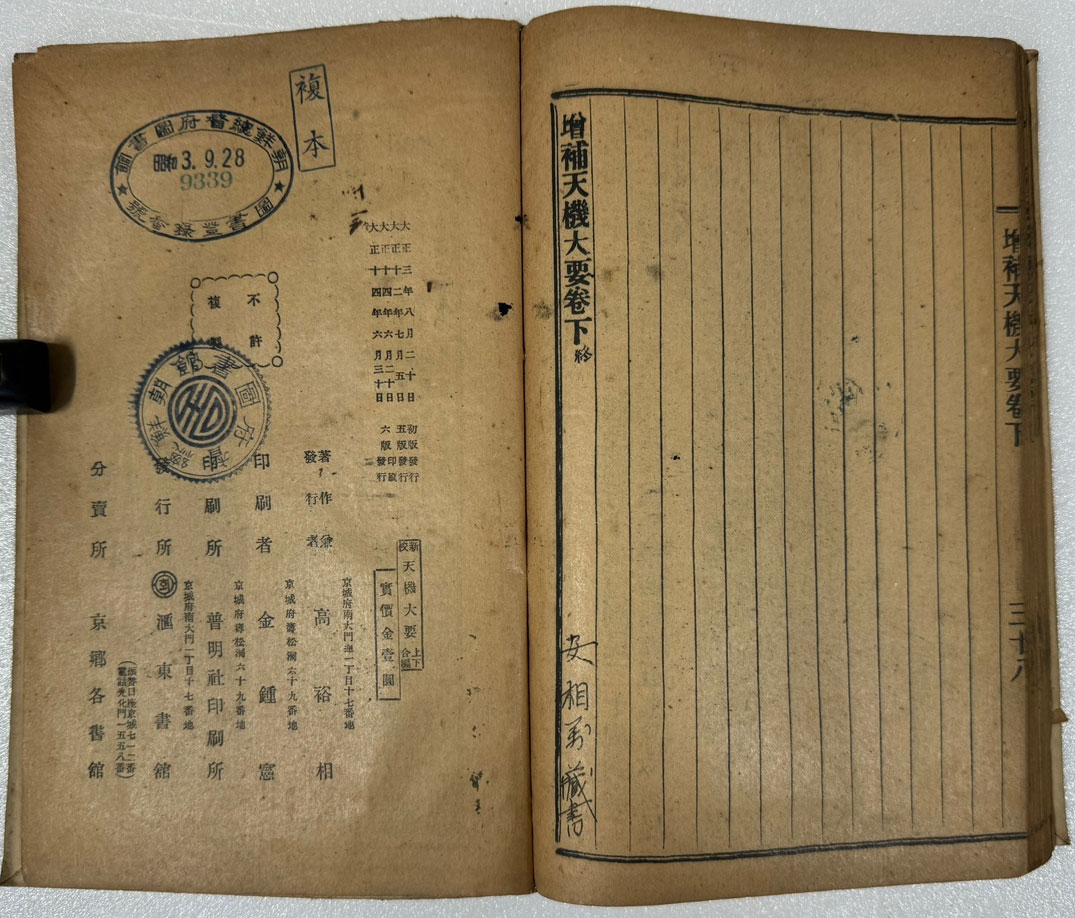 增補天機大要卷下
三十八
增補天機大要卷下終
安相萬藏書
大正三年八月二十日初版發行
大正十二年七月五日五版發行
大正十四年六月二十日六版印刷
大正十四年六月三十日六版發行
新校天機大要上下合編
實價金壹圓
京城府南大門通一丁目十七番地
著作兼發行者 高裕相
京城府壽松洞六十九番地
印刷者 金鍾憲
京城府壽松洞六十九番地
印刷所 普明社印刷所
京城府南大門一丁目十七番地
發行所 滙東書館
振替口座京城七一二番
電話光化門一五五八番
分賣所 京鄉各書館
不許複製
複本
朝鮮總督府圖書館
昭和3.9.28
9339
圖書登錄番號
朝鮮總督府圖書館